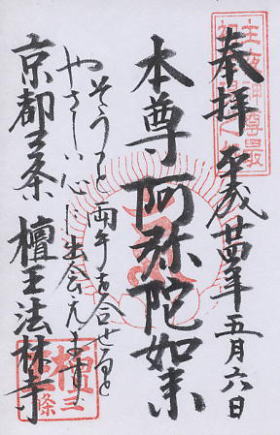 奉拝 平成廿四年五月六日
本尊 阿弥陀如来
そっと両手を合せると
やさしい心に出会えます
京都三条 檀王法林寺